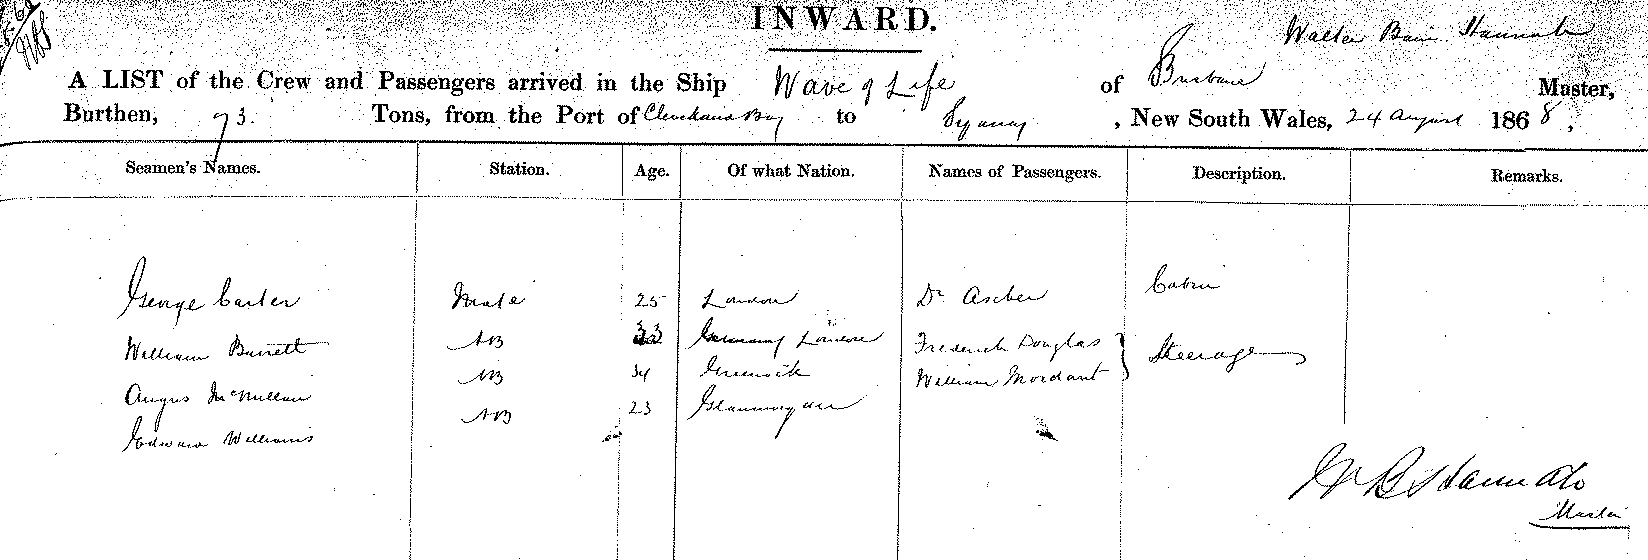 INWARD.
Walter Bain Hannah
A LIST of the Crew and Passengers arrived in the Ship Wave of Life of Brisbane Master,
Burthen, 73. Tons, from the Port of Cleveland Bay to Sydney, New South Wales, 24 August 1868,
Seamen's Names. Station. Age. Of what Nation. Names of Passengers. Description. Remarks.
George Carter Mate 25 London Dr Ascher Cabin
William Barrett AB 33 London Frederick Douglas Steerage
Angus McMillan AB 34 Greenock William Mordant
Edward Williams AB 23 Glamorgan
W B Hannah
Master